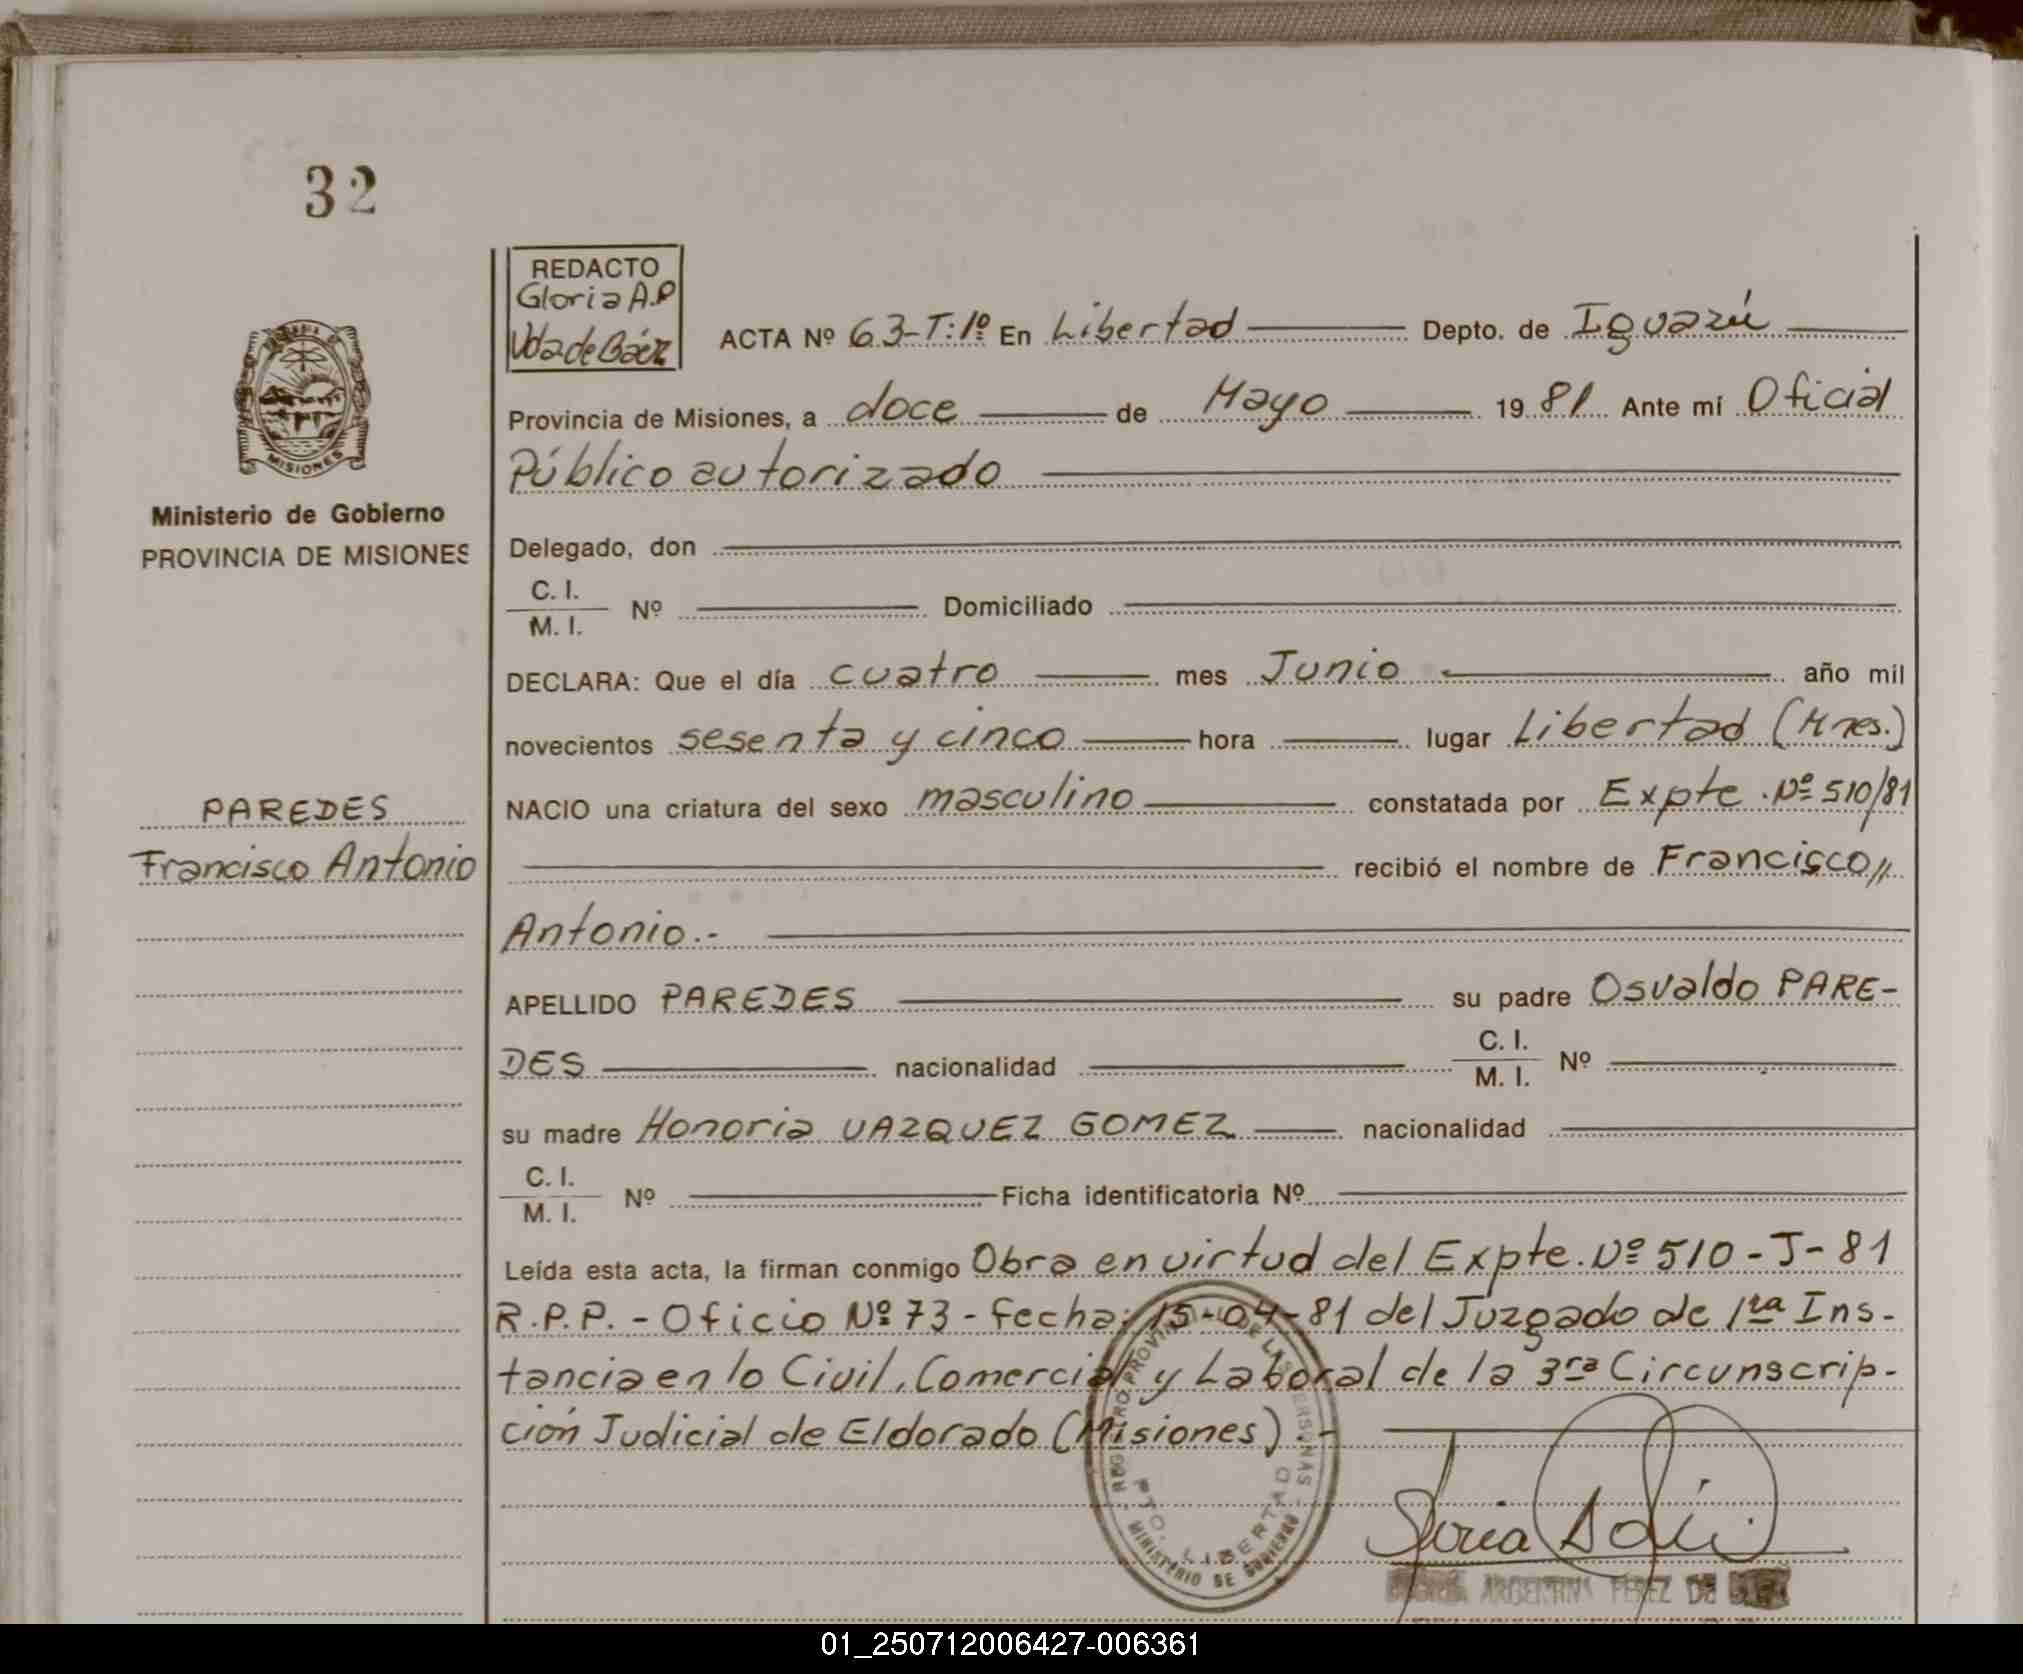 32
REDACTO
Gloria A.P
Vda de Báez
ACTA Nº 63-T:1º En Libertad Depto. de Iguazú
Provincia de Misiones, a doce de Mayo 1981 Ante mi Oficial
Público autorizado
MISIONES
Ministerio de Gobierno
PROVINCIA DE MISIONES
Delegado, don
C. I.
M. I. Nº Domiciliado
DECLARA: Que el día cuatro mes Junio año mil
novecientos sesenta y cinco hora lugar Libertad (Mnes.)
NACIO una criatura del sexo masculino constatada por Expte. Nº 510/81
PAREDES
Francisco Antonio
recibió el nombre de Francisco//
Antonio.-
APELLIDO PAREDES su padre Osvaldo PARE-
DES nacionalidad C. I. M. I. Nº
su madre Honoria VAZQUEZ GOMEZ nacionalidad
C. I.
M. I. Nº Ficha identificatoria Nº
Leída esta acta, la firman conmigo Obra en virtud del Expte. Nº 510-J-81
R.P.P. - Oficio Nº 73 - fecha: 15-04-81 del Juzgado de 1ra Ins-
tancia en lo Civil, Comercial y Laboral de la 3ra Circunscrip-
ción Judicial de Eldorado (Misiones).-
REGISTRO PROVINCIAL DE LAS PERSONAS
PTO. LIBERTAD
MINISTERIO DE GOBIERNO
ARGENTINA PEREZ DE BAEZ
01_250712006427-006361